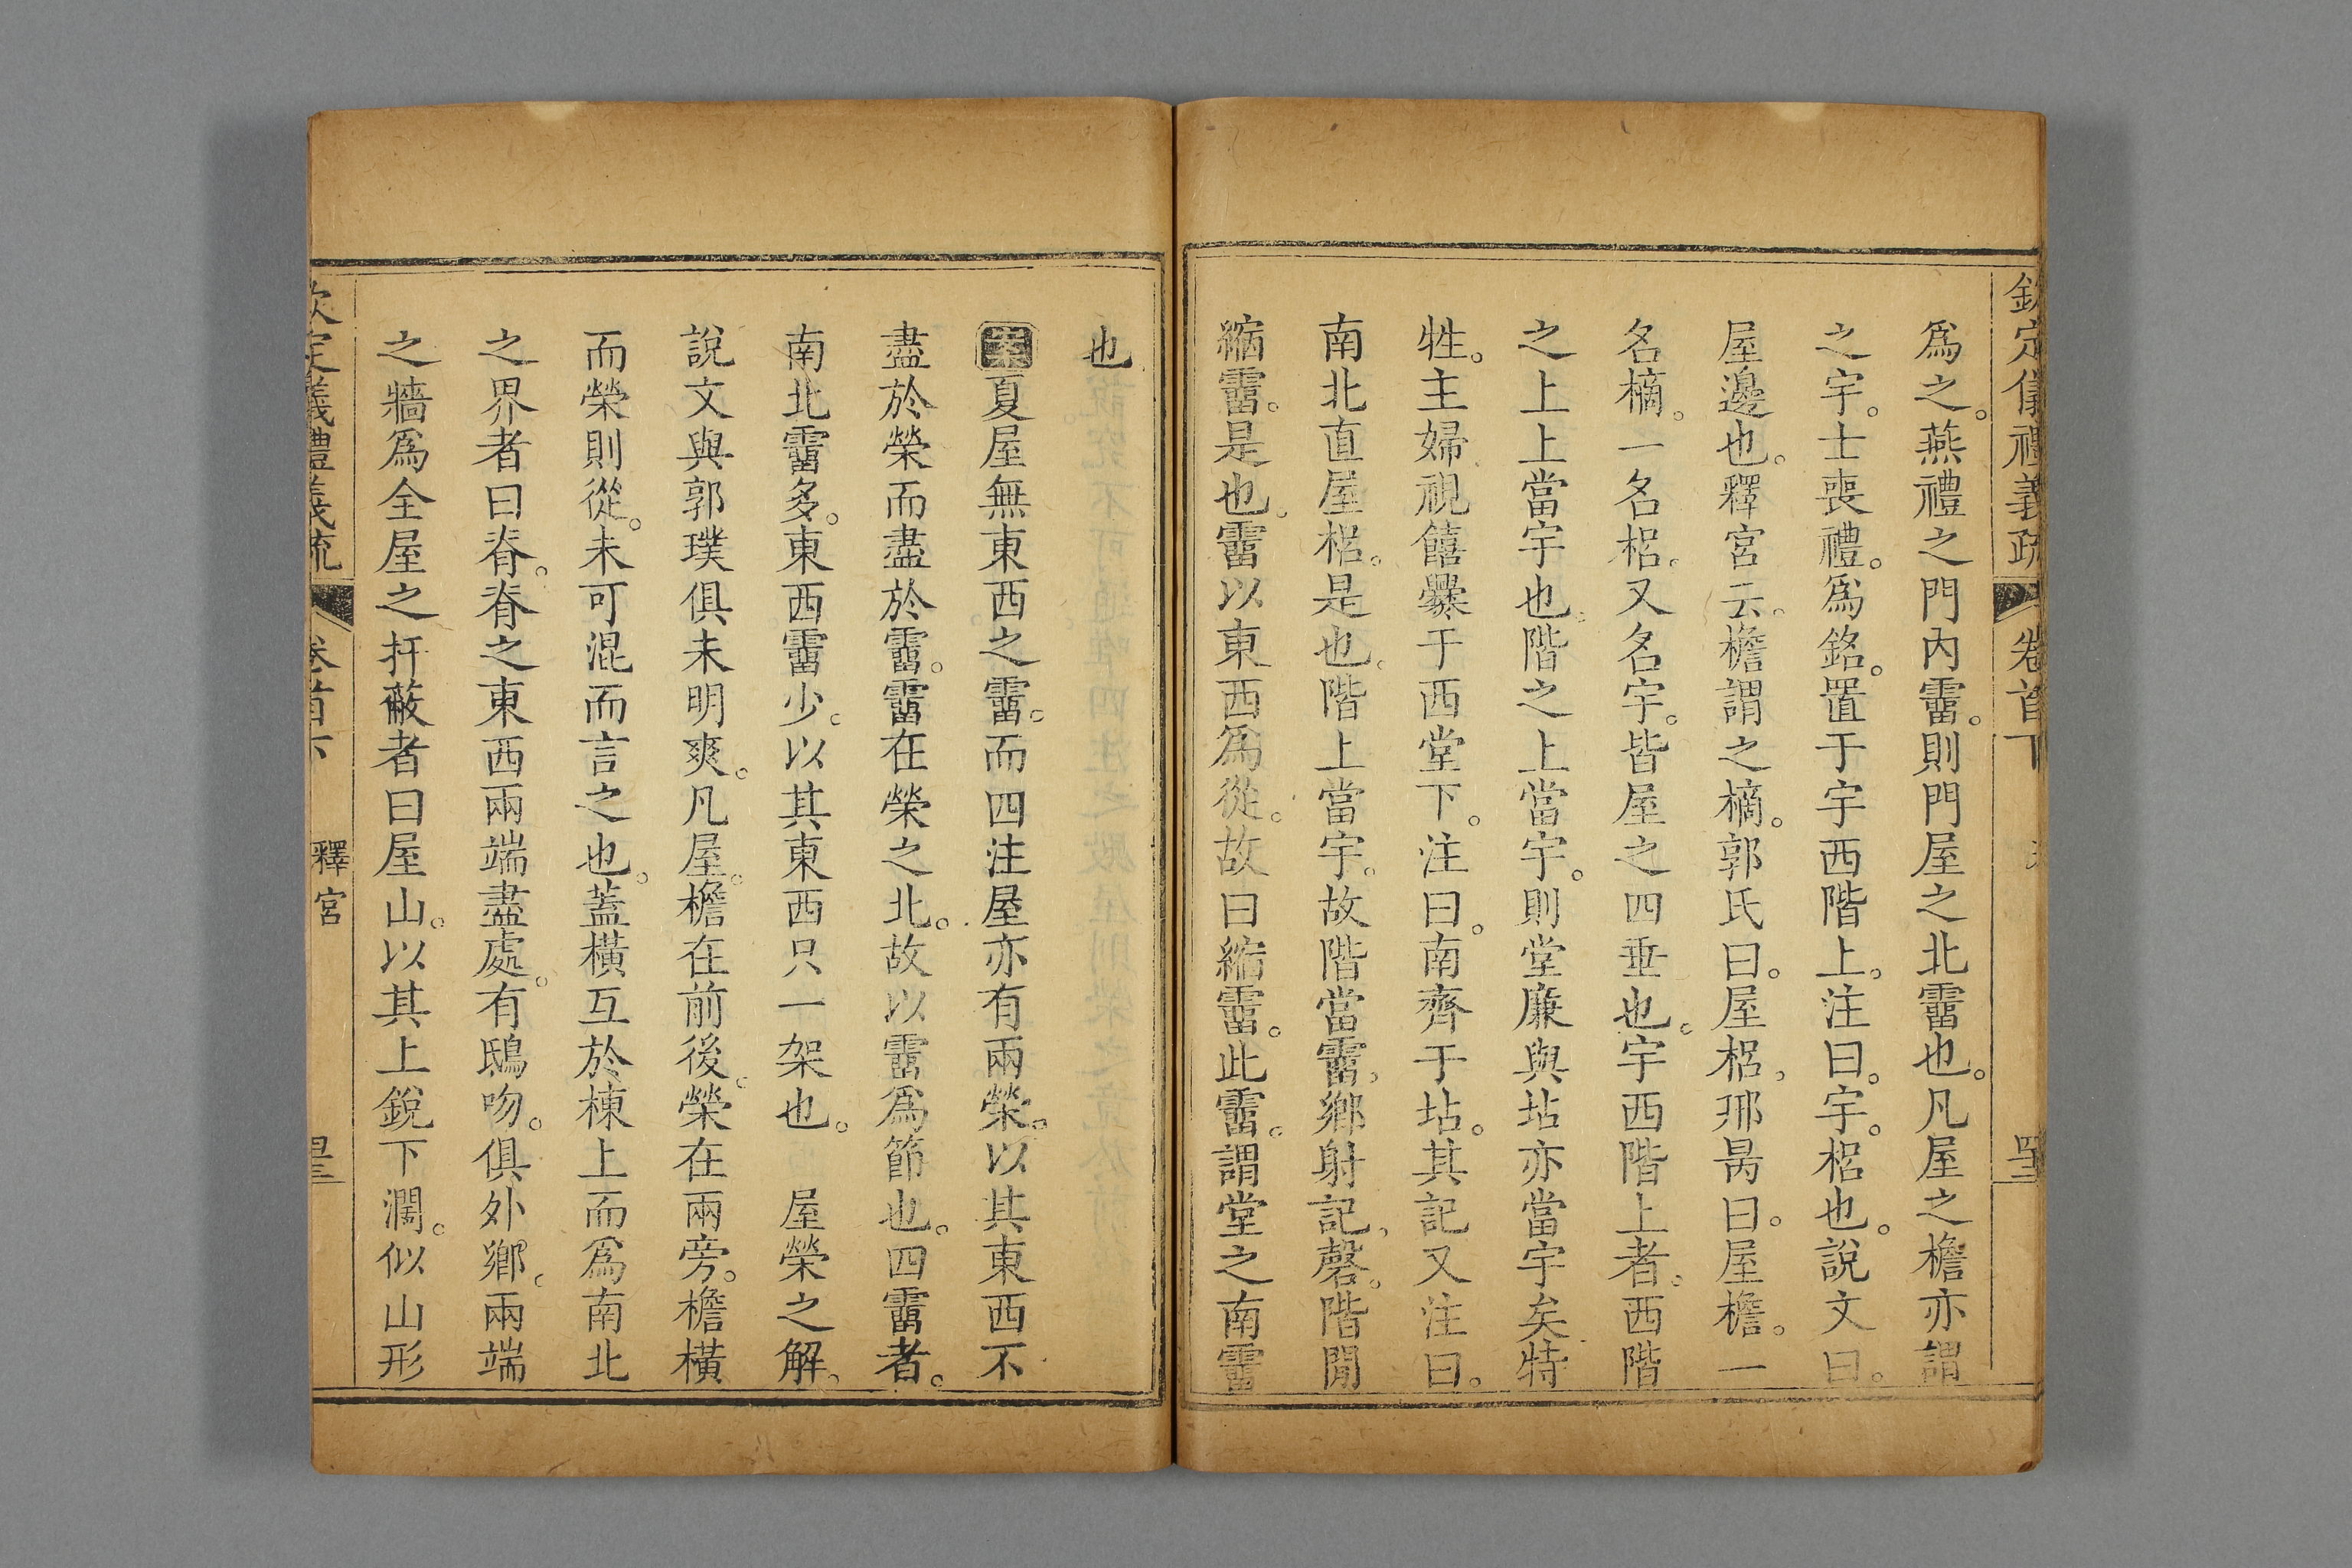 欽定儀禮義疏 卷首下
爲之。燕禮之門內霤。則門屋之北霤也。凡屋之檐亦謂
之宇。士喪禮。爲銘。置于宇西階上。注曰。宇。梠也。說文曰。
屋邊也。釋宮云。檐謂之樀。郭氏曰。屋梠。邢昺曰。屋檐。一
名樀。一名梠。又名宇。皆屋之四垂也。宇西階上者。西階
之上上當宇也。階之上當宇。則堂廉與坫亦當宇矣特
牲。主婦視饎爨于西堂下。注曰。南齊于坫。其記又注曰。
南北直屋梠。是也。階上當宇。故階當霤。鄉射記。磬。階閒
縮霤。是也。霤以東西爲從。故曰縮霤。此霤。謂堂之南霤
也
案夏屋無東西之霤。而四注屋亦有兩榮。以其東西不
盡於榮而盡於霤。霤在榮之北。故以霤爲節也。四霤者。
南北霤多。東西霤少。以其東西只一架也。 屋榮之解。
說文與郭璞俱未明爽。凡屋。檐在前後。榮在兩旁。檐橫
而榮則從。未可混而言之也。蓋橫互於棟上而爲南北
之界者曰脊。脊之東西兩端盡處。有鴟吻。俱外鄉。兩端
之牆爲全屋之扞蔽者曰屋山。以其上銳下濶。似山形
欽定儀禮義疏 卷首下 釋宮